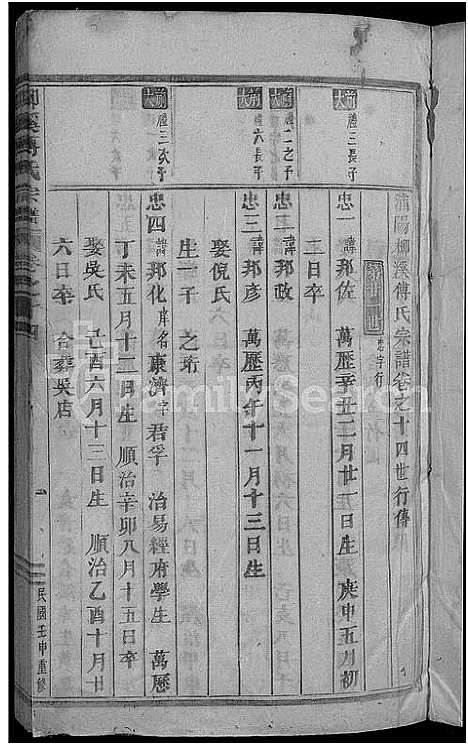 浦陽柳溪傅氏宗譜卷之十四世行傳
忠字行
前大
禮三長子
忠一諱邦佐 萬歷辛丑二月廿一日生 庚申五月初
二日卒
前大
禮二之子
忠二諱邦政
前大
禮六長子
忠三諱邦彥 萬歷丙午十一月十三日生
娶倪氏
生一子 之珩
前大
禮三次子
忠四諱邦化庠名康濟字君孚 治易經府學生 萬歷
丁未五月十二日生 順治辛卯八月十五日卒
娶吳氏 己酉六月十三日生 順治乙酉十月廿
六日卒 合葬吳店
一
民國壬申重修
FamilySearch